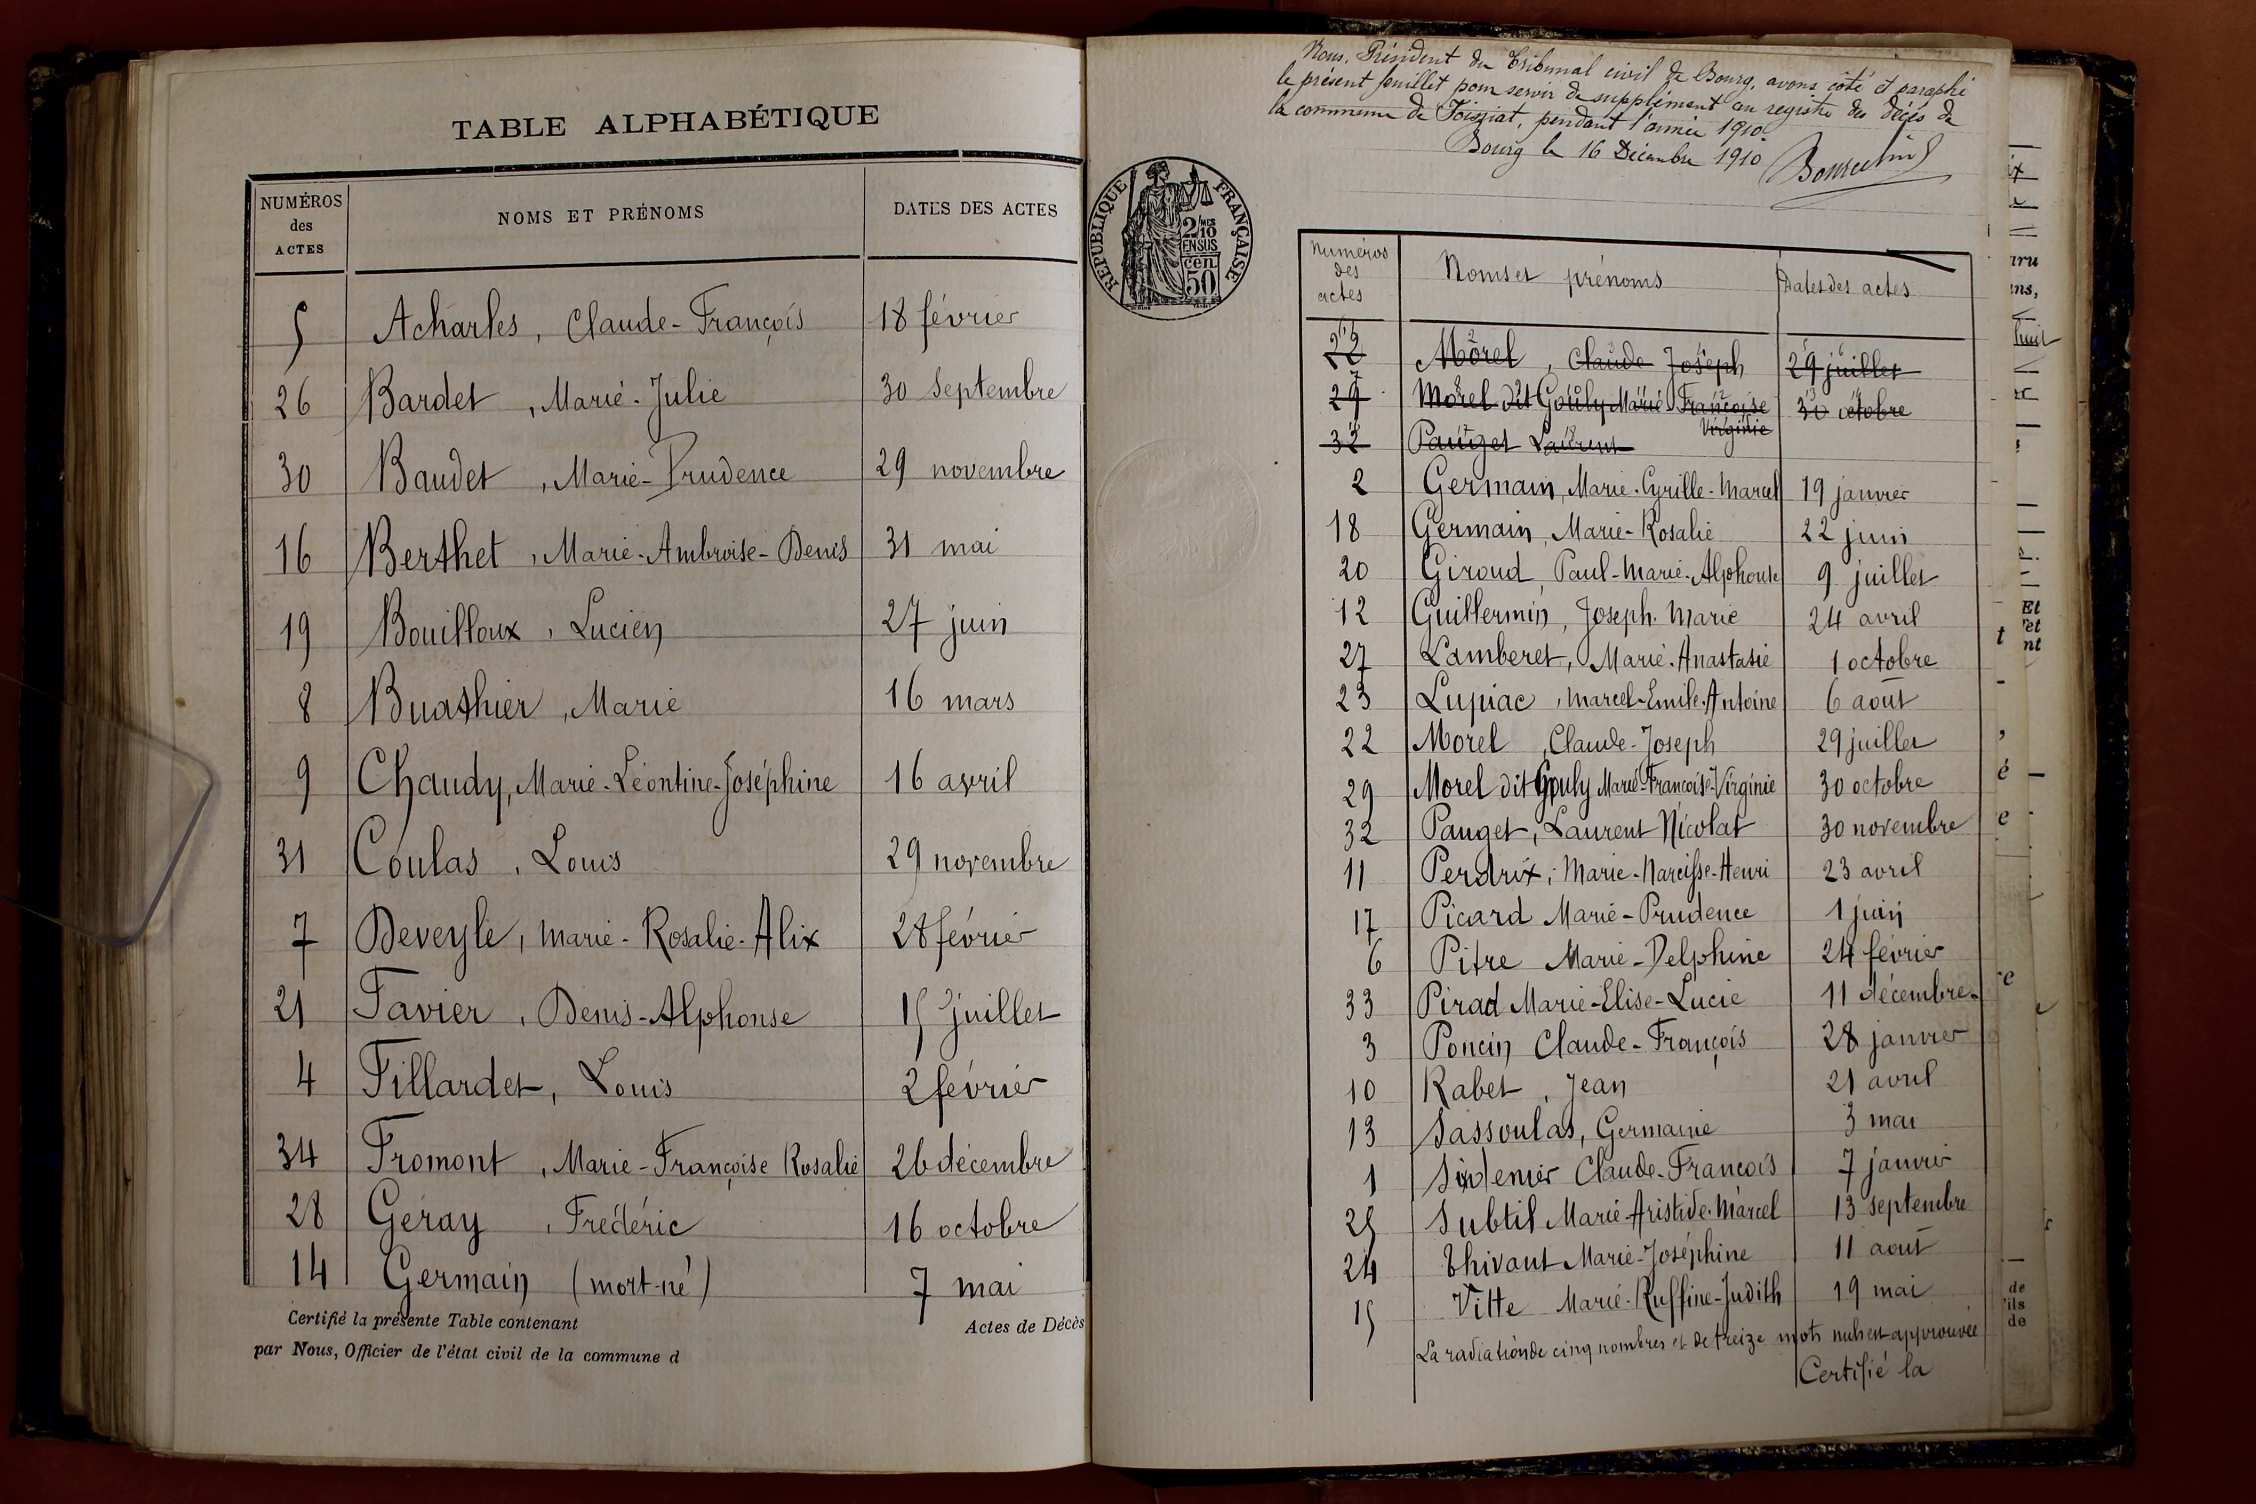 TABLE ALPHABÉTIQUE
NUMÉROS des ACTES NOMS ET PRÉNOMS DATES DES ACTES
5 Acharles, Claude-François 18 février
26 Bardet, Marie-Julie 30 septembre
30 Baudet, Marie-Prudence 29 novembre
16 Berthet, Marie-Ambroise-Denis 31 mai
19 Bouilloux, Lucien 27 juin
8 Buathier, Marie 16 mars
9 Chaudy, Marie-Léontine-Joséphine 16 avril
31 Coulas, Louis 29 novembre
7 Deveyle, Marie-Rosalie-Alix 28 février
21 Favier, Denis-Alphonse 15 juillet
4 Fillardet, Louis 2 février
34 Fromont, Marie-Françoise Rosalie 26 décembre
28 Geray, Frédéric 16 octobre
14 Germain (mort-né) 7 mai
Certifié la présente Table contenant Actes de Décès
par Nous, Officier de l'état civil de la commune d
Nous, Président du Tribunal civil de Bourg, avons côté et paraphé
le présent feuillet pour servir de supplément au registre des décès de
la commune de Foissiat, pendant l'année 1910.
Bourg le 16 Décembre 1910
RÉPUBLIQUE FRANÇAISE
2/10 MES
EN SUS
50 cen
Numéros des actes Noms et prénoms Dates des actes
22 Morel, Claude Joseph 29 juillet
29 Morel dit Gouly Marie Françoise 30 octobre
Virginie
32 Pauget Laurent
2 Germain, Marie-Cyrille-Marcel 19 janvier
18 Germain, Marie-Rosalie 22 juin
20 Giroud, Paul-Marie-Alphonse 9 juillet
12 Guillermin, Joseph-Marie 24 avril
27 Lamberet, Marie-Anastasie 1 octobre
23 Lupiac, Marcel-Emile-Antoine 6 août
22 Morel, Claude-Joseph 29 juillet
29 Morel dit Gouly Marie-Françoise-Virginie 30 octobre
32 Pauget, Laurent Nicolas 30 novembre
11 Perdrix, Marie-Narcisse-Henri 23 avril
17 Picard Marie-Prudence 1 juin
6 Pitre Marie-Delphine 24 février
33 Pirad Marie-Elise-Lucie 11 décembre
3 Poncin Claude-François 28 janvier
10 Rabet, Jean 21 avril
13 Sassoulas, Germaine 3 mai
1 Claude-François 7 janvier
25 Subtil Marie-Aristide-Marcel 13 septembre
24 Thivant Marie-Joséphine 11 août
15 Vitte Marie-Ruffine-Judith 19 mai
La radiation de cinq nombres et de treize mots nuls est approuvée
Certifié la